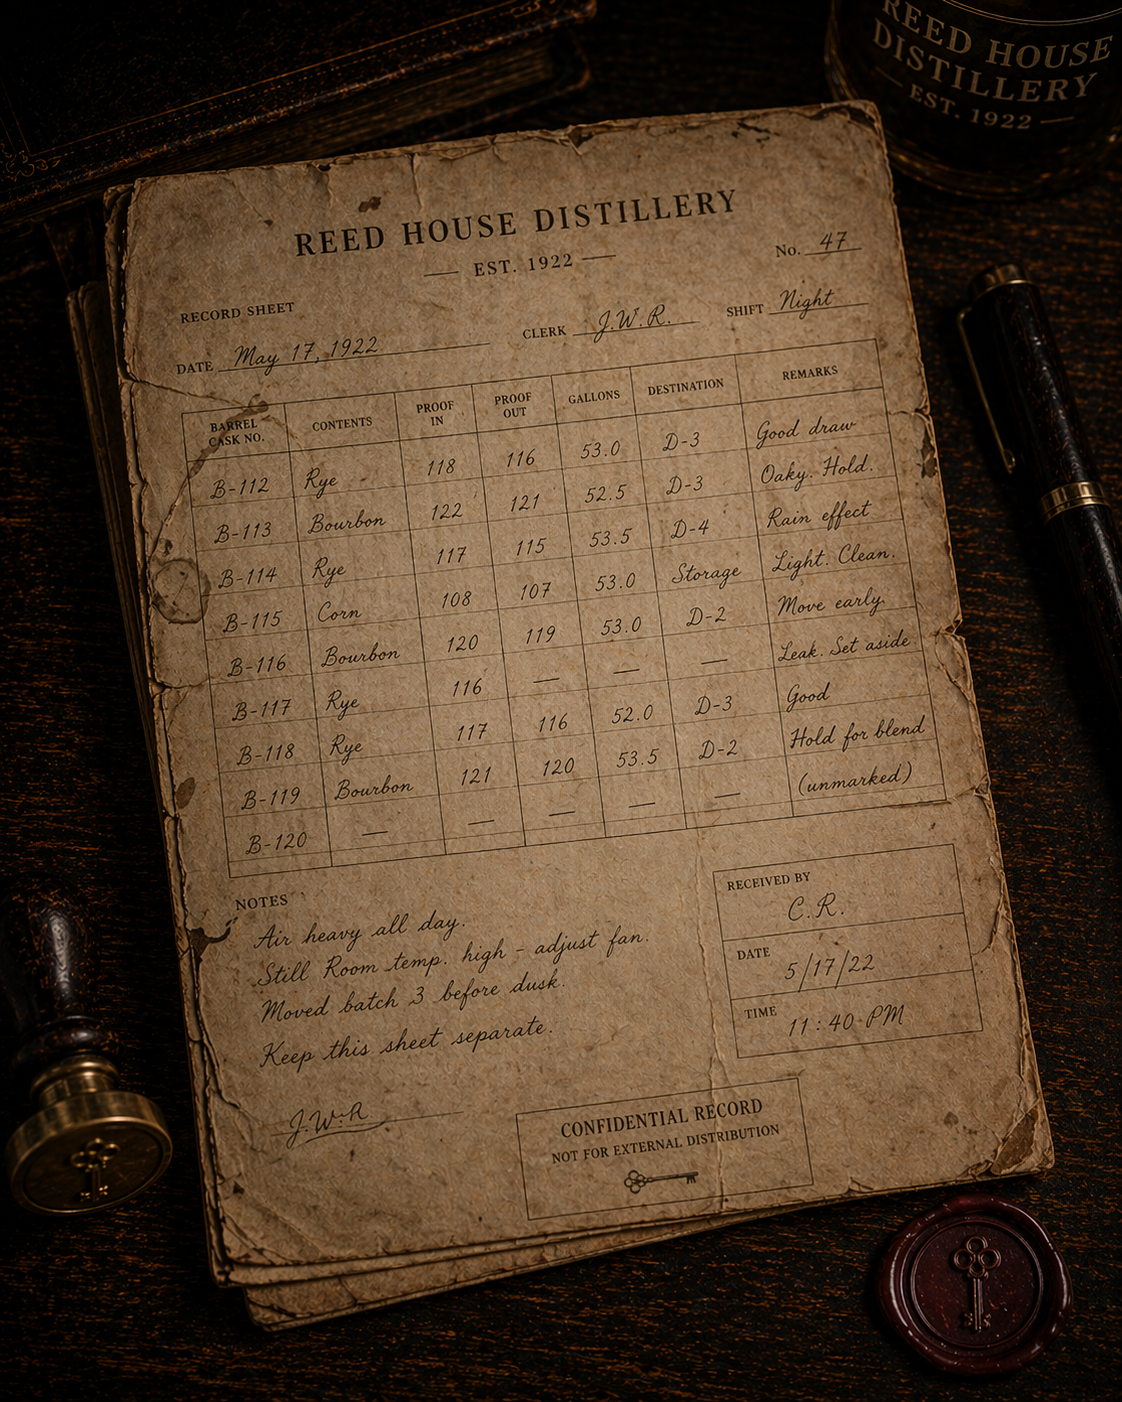 REED HOUSE
DISTILLERY
EST. 1922
REED HOUSE DISTILLERY
EST. 1922
No. 47
RECORD SHEET
DATE May 17, 1922 CLERK J.W.R. SHIFT Night
BARREL CASK NO. CONTENTS PROOF IN PROOF OUT GALLONS DESTINATION REMARKS
B-112 Rye 118 116 53.0 D-3 Good draw
B-113 Bourbon 122 121 52.5 D-3 Oaky. Hold.
B-114 Rye 117 115 53.5 D-4 Rain effect
B-115 Corn 108 107 53.0 Storage Light. Clean.
B-116 Bourbon 120 119 53.0 D-2 Move early.
B-117 Rye 116 — — — Leak. Set aside
B-118 Rye 117 116 52.0 D-3 Good
B-119 Bourbon 121 120 53.5 D-2 Hold for blend
B-120 — — — — — (unmarked)
NOTES
Air heavy all day.
Still Room temp. high - adjust fan.
Moved batch 3 before dusk.
Keep this sheet separate.
J.W.R
RECEIVED BY
C.R.
DATE
5/17/22
TIME
11:40 PM
CONFIDENTIAL RECORD
NOT FOR EXTERNAL DISTRIBUTION